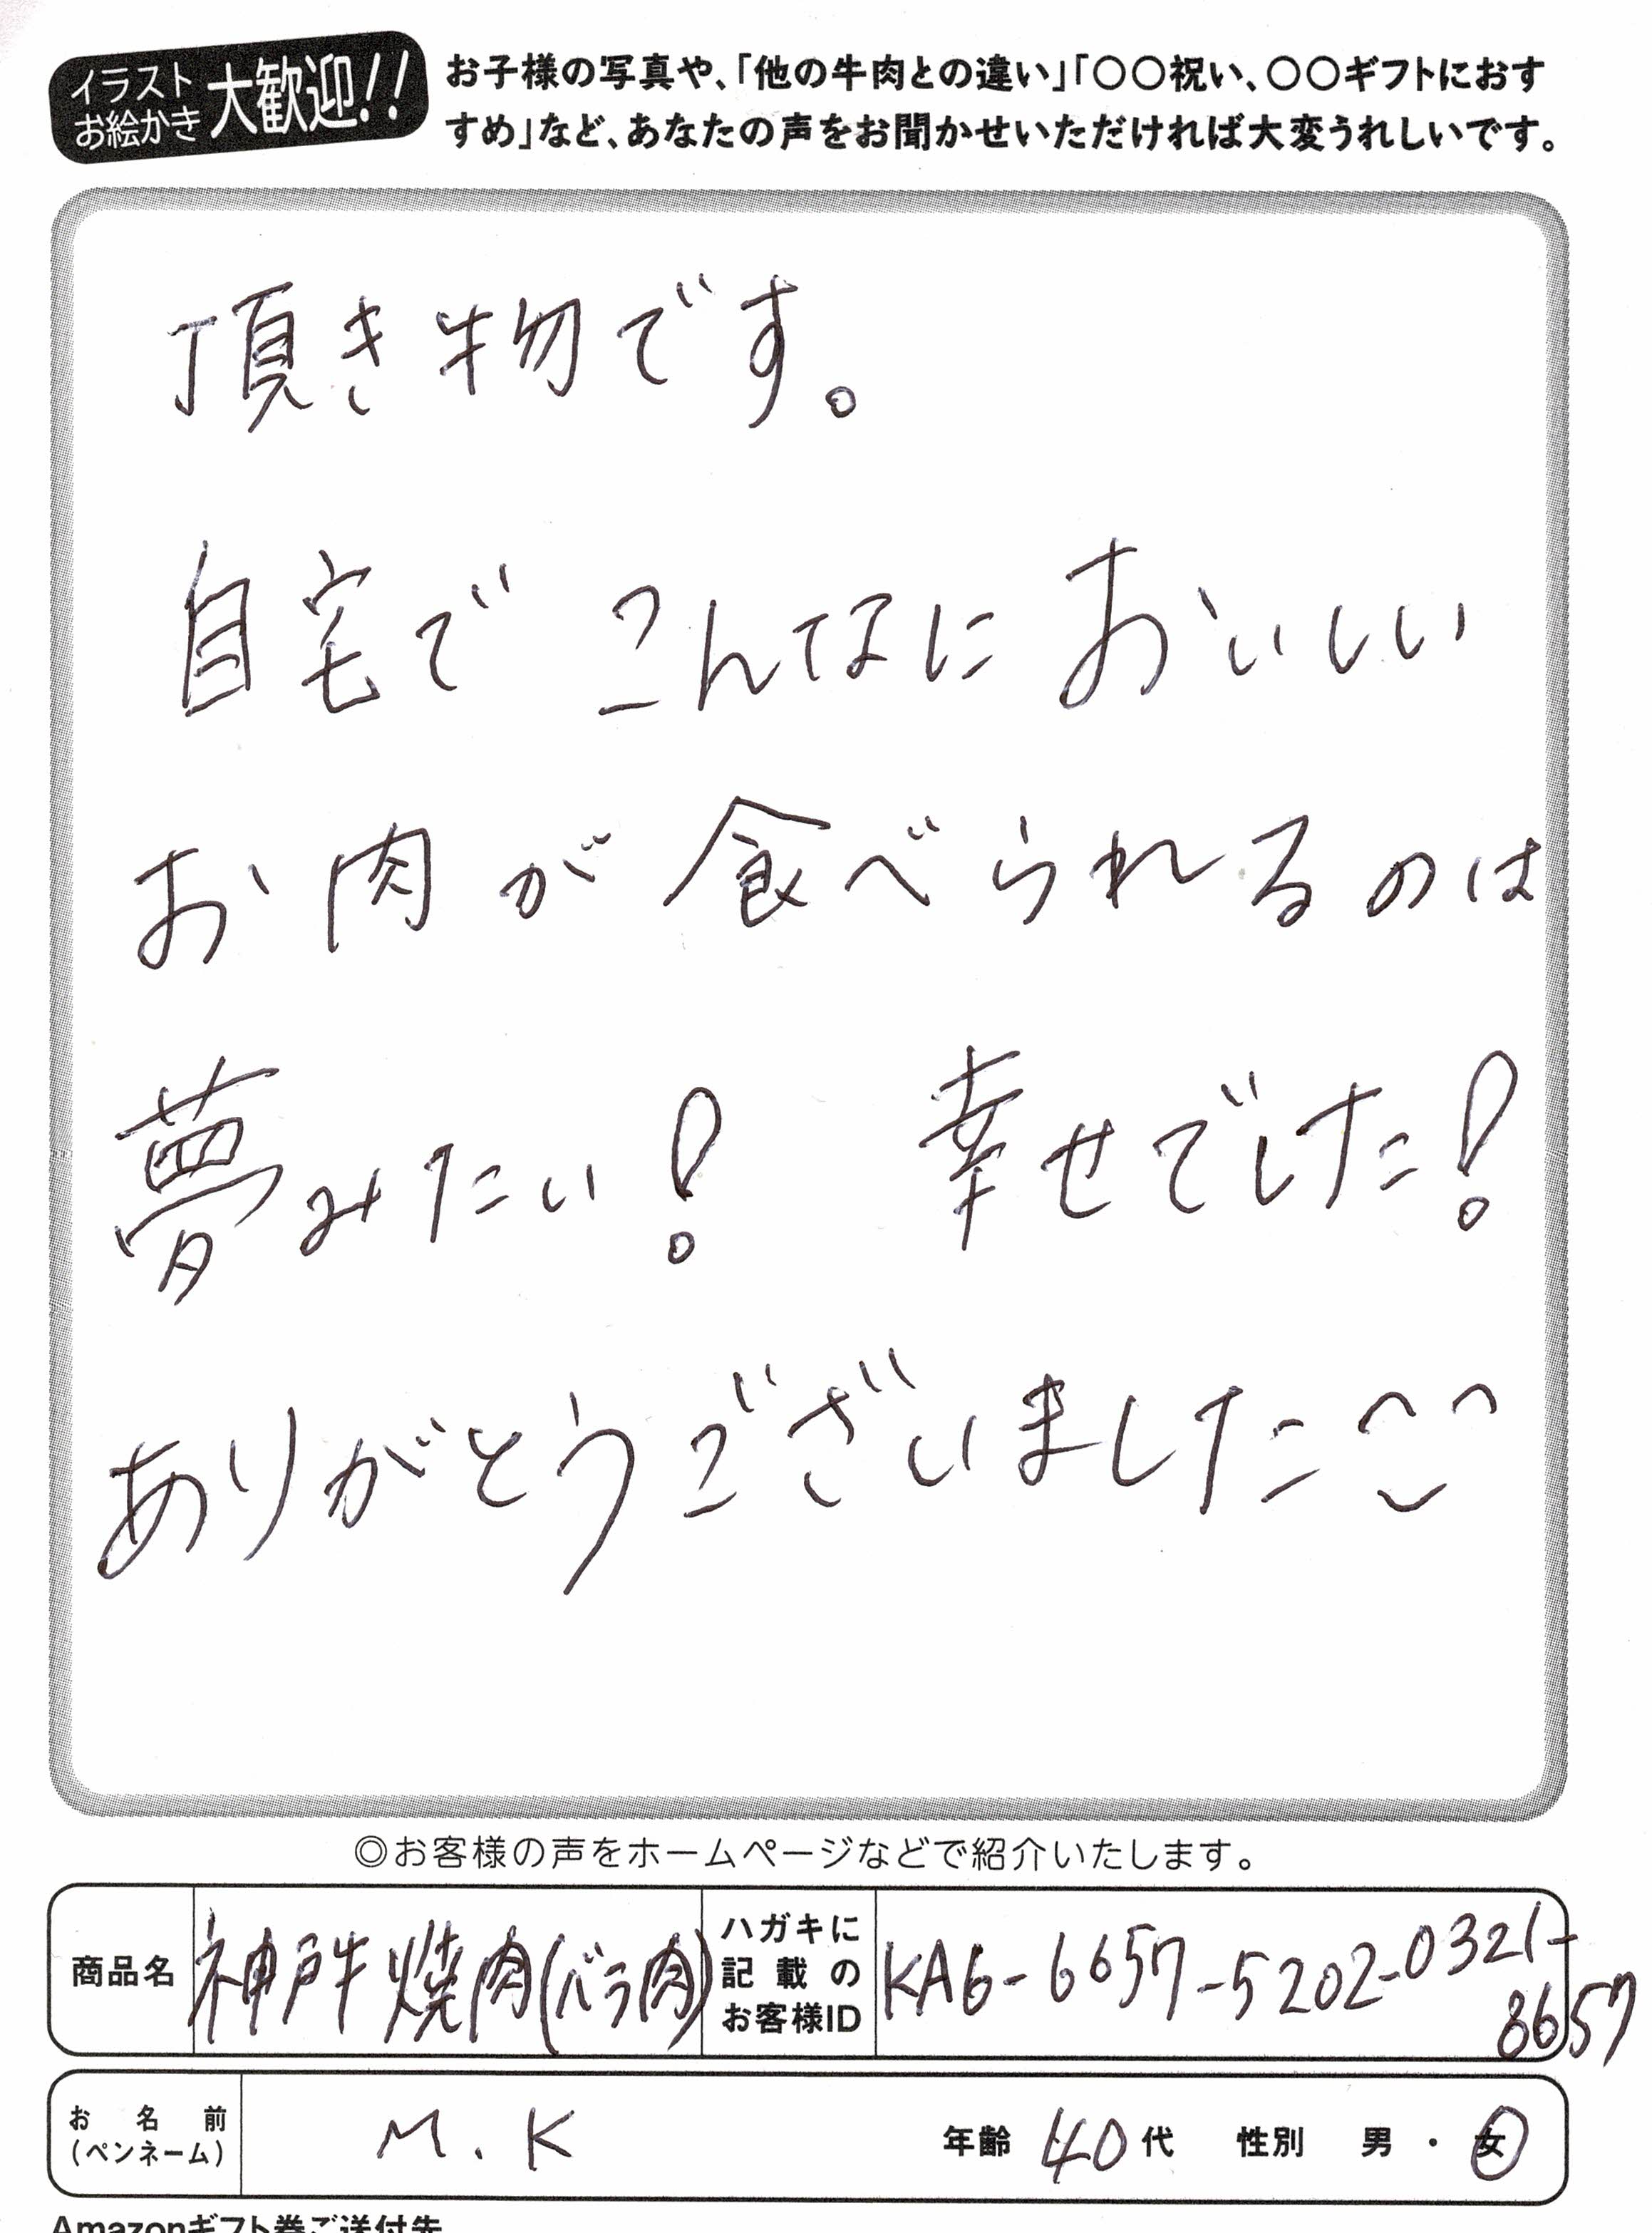 イラスト
お絵かき
大歓迎!!
お子様の写真や、「他の牛肉との違い」「〇〇祝い、〇〇ギフトにおす
すめ」など、あなたの声をお聞かせいただければ大変うれしいです。
頂き物です。
自宅で こんなに おいしい
お肉が食べられるのは
夢みたい! 幸せでした!
ありがとうございました
◎お客様の声をホームページなどで紹介いたします。
商品名
神戸牛焼肉(バラ肉)
ハガキに
記載の
お客様ID
KA6-6657-5202-0321-
8657
お名前
(ペンネーム)
M.K
年齢 40代 性別 男・女
Amazonギフト券ご送付先